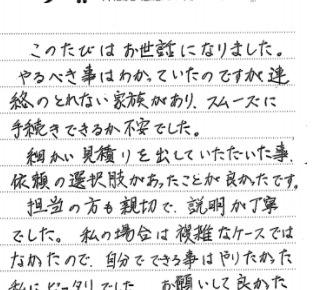 このたびはお世話になりました。
やるべき事はわかっていたのですが、連
絡のとれない家族があり、スムーズに
手続きできるか不安でした。
細かい見積りを出していただいた事、
依頼の選択肢があったことが良かったです。
担当の方も親切で、説明が丁寧
でした。私の場合は複雑なケースでは
なかったので、自分でできる事はやりたかった
私にピッタリでした。お願いして良かった